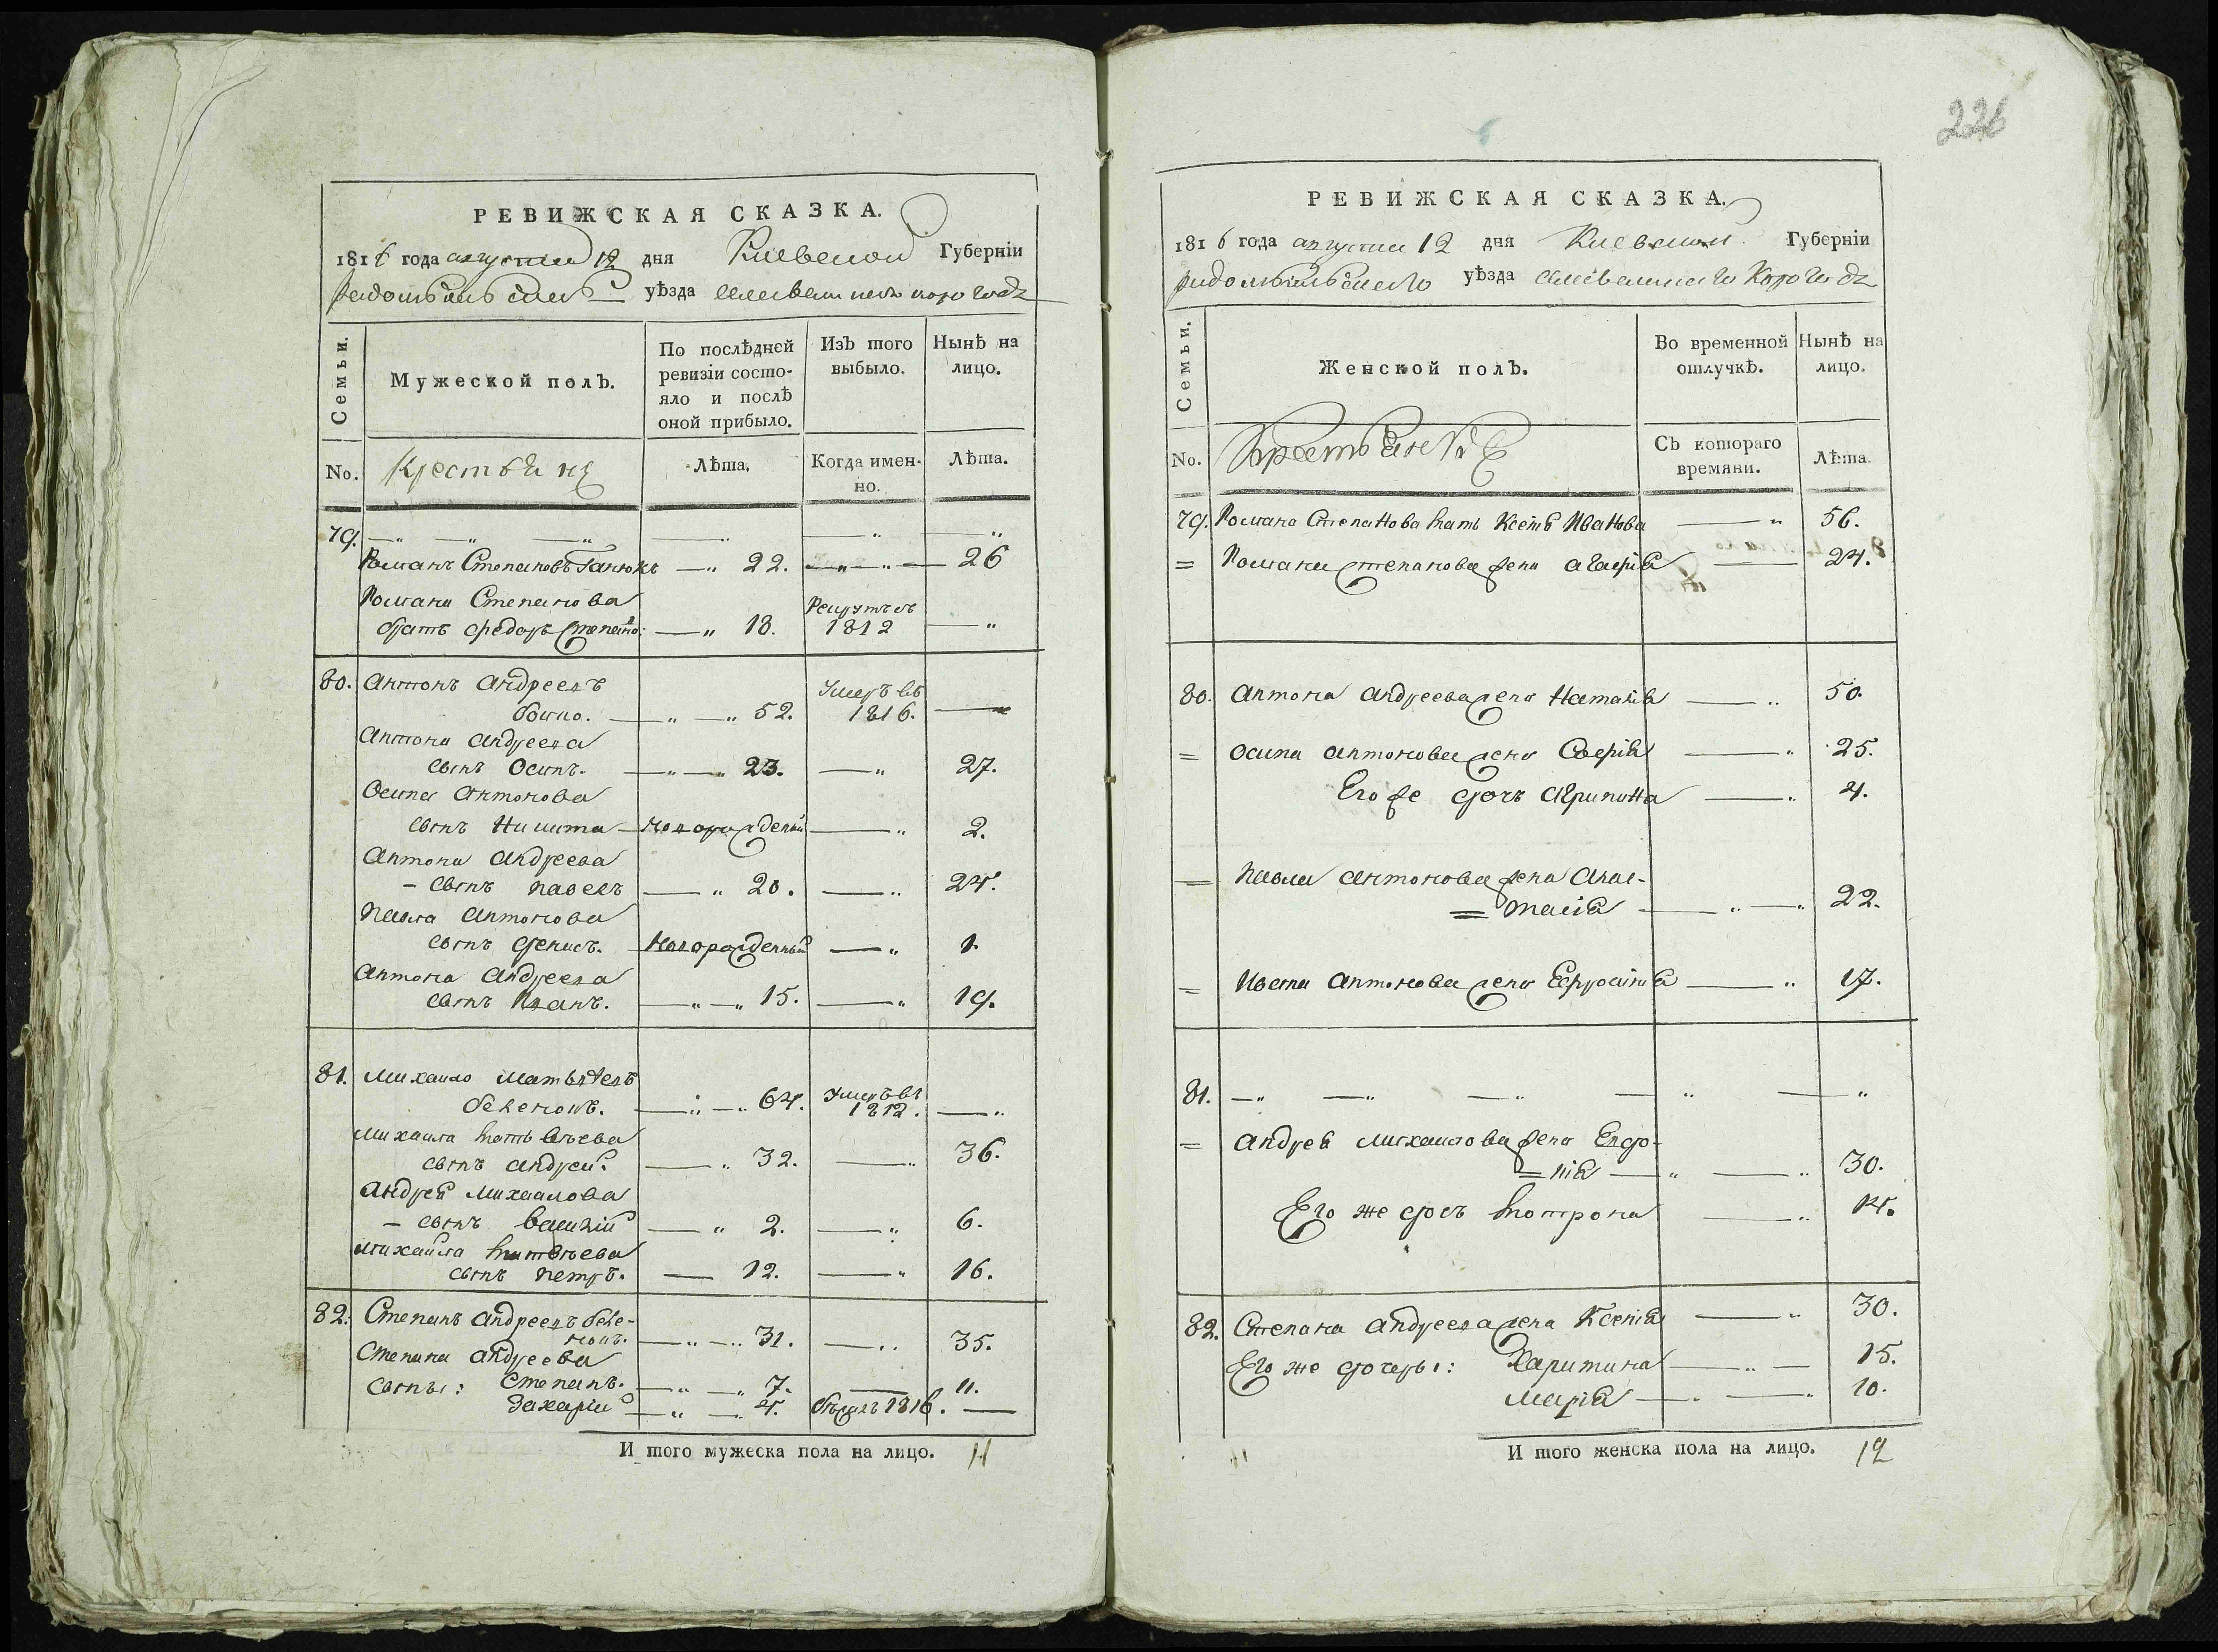 226
РЕВИЖСКАЯ СКАЗКА.
1816 года августа 12 дня Киевской Губерніи
уѣзда
Семьи.
Мужеской полъ.
По послѣдней ревизіи состо-
яло и послѣ оной прибыло.
Изъ того выбыло.
Нынѣ на лицо.
No.
Крестьяне
Лѣта.
Когда имен-
но.
Лѣта.
79.
Романъ Степановъ Ганюкъ 22. 26
Романа Степанова
братъ Федоръ Степано: 18. Рекрутъ въ 1812
80. Антонъ Андреевъ
52. Умеръ въ 1816.
Антона Андреева
сынъ Осипъ. 23. 27.
Осипа Антонова
сынъ Никита новорожденный 2.
Антона Андреева
сынъ Павелъ 20. 24.
Павла Антонова
сынъ Денисъ. Новорожденный 1.
Антона Андреева
сынъ Иванъ. 15. 19.
81. Михайло Матвѣевъ
64. Умеръ въ 1812.
Михайла Матвѣева
сынъ Андрей. 32. 36.
Андрея Михайлова
сынъ Василій 2. 6.
Михайла Матвѣева
сынъ Петръ. 12. 16.
82. Степанъ Андреевъ
31. 35.
Степана Андреева
сыны: Степанъ. 7. 11.
Захарій 4. 1816.
И того мужеска пола на лицо. 11
РЕВИЖСКАЯ СКАЗКА.
1816 года августа 12 дня Киевской Губерніи
уѣзда
Семьи.
Женской полъ.
Во временной отлучкѣ.
Нынѣ на лицо.
No.
Крестьянѣ
Съ котораго
времяни.
Лѣта.
79. Романа Степанова мать Ксенья Иванова 56.
= Романа Степанова жена Агафія 24.
80. Антона Андреева жена Наталія 50.
= Осипа Антонова жена Софія 25.
Его же дочь Агрипина 4.
= Павла Антонова жена Анас-
= тасія 22.
= Ивана Антонова жена Ефросинія 17.
81.
= Андрея Михайлова жена Евдо-
= кія 30.
Его же дочь Мотрона 14.
82. Степана Андреева жена Ксенія 30.
Его же дочеры: Харитина 15.
Марія 10.
И того женска пола на лицо. 12